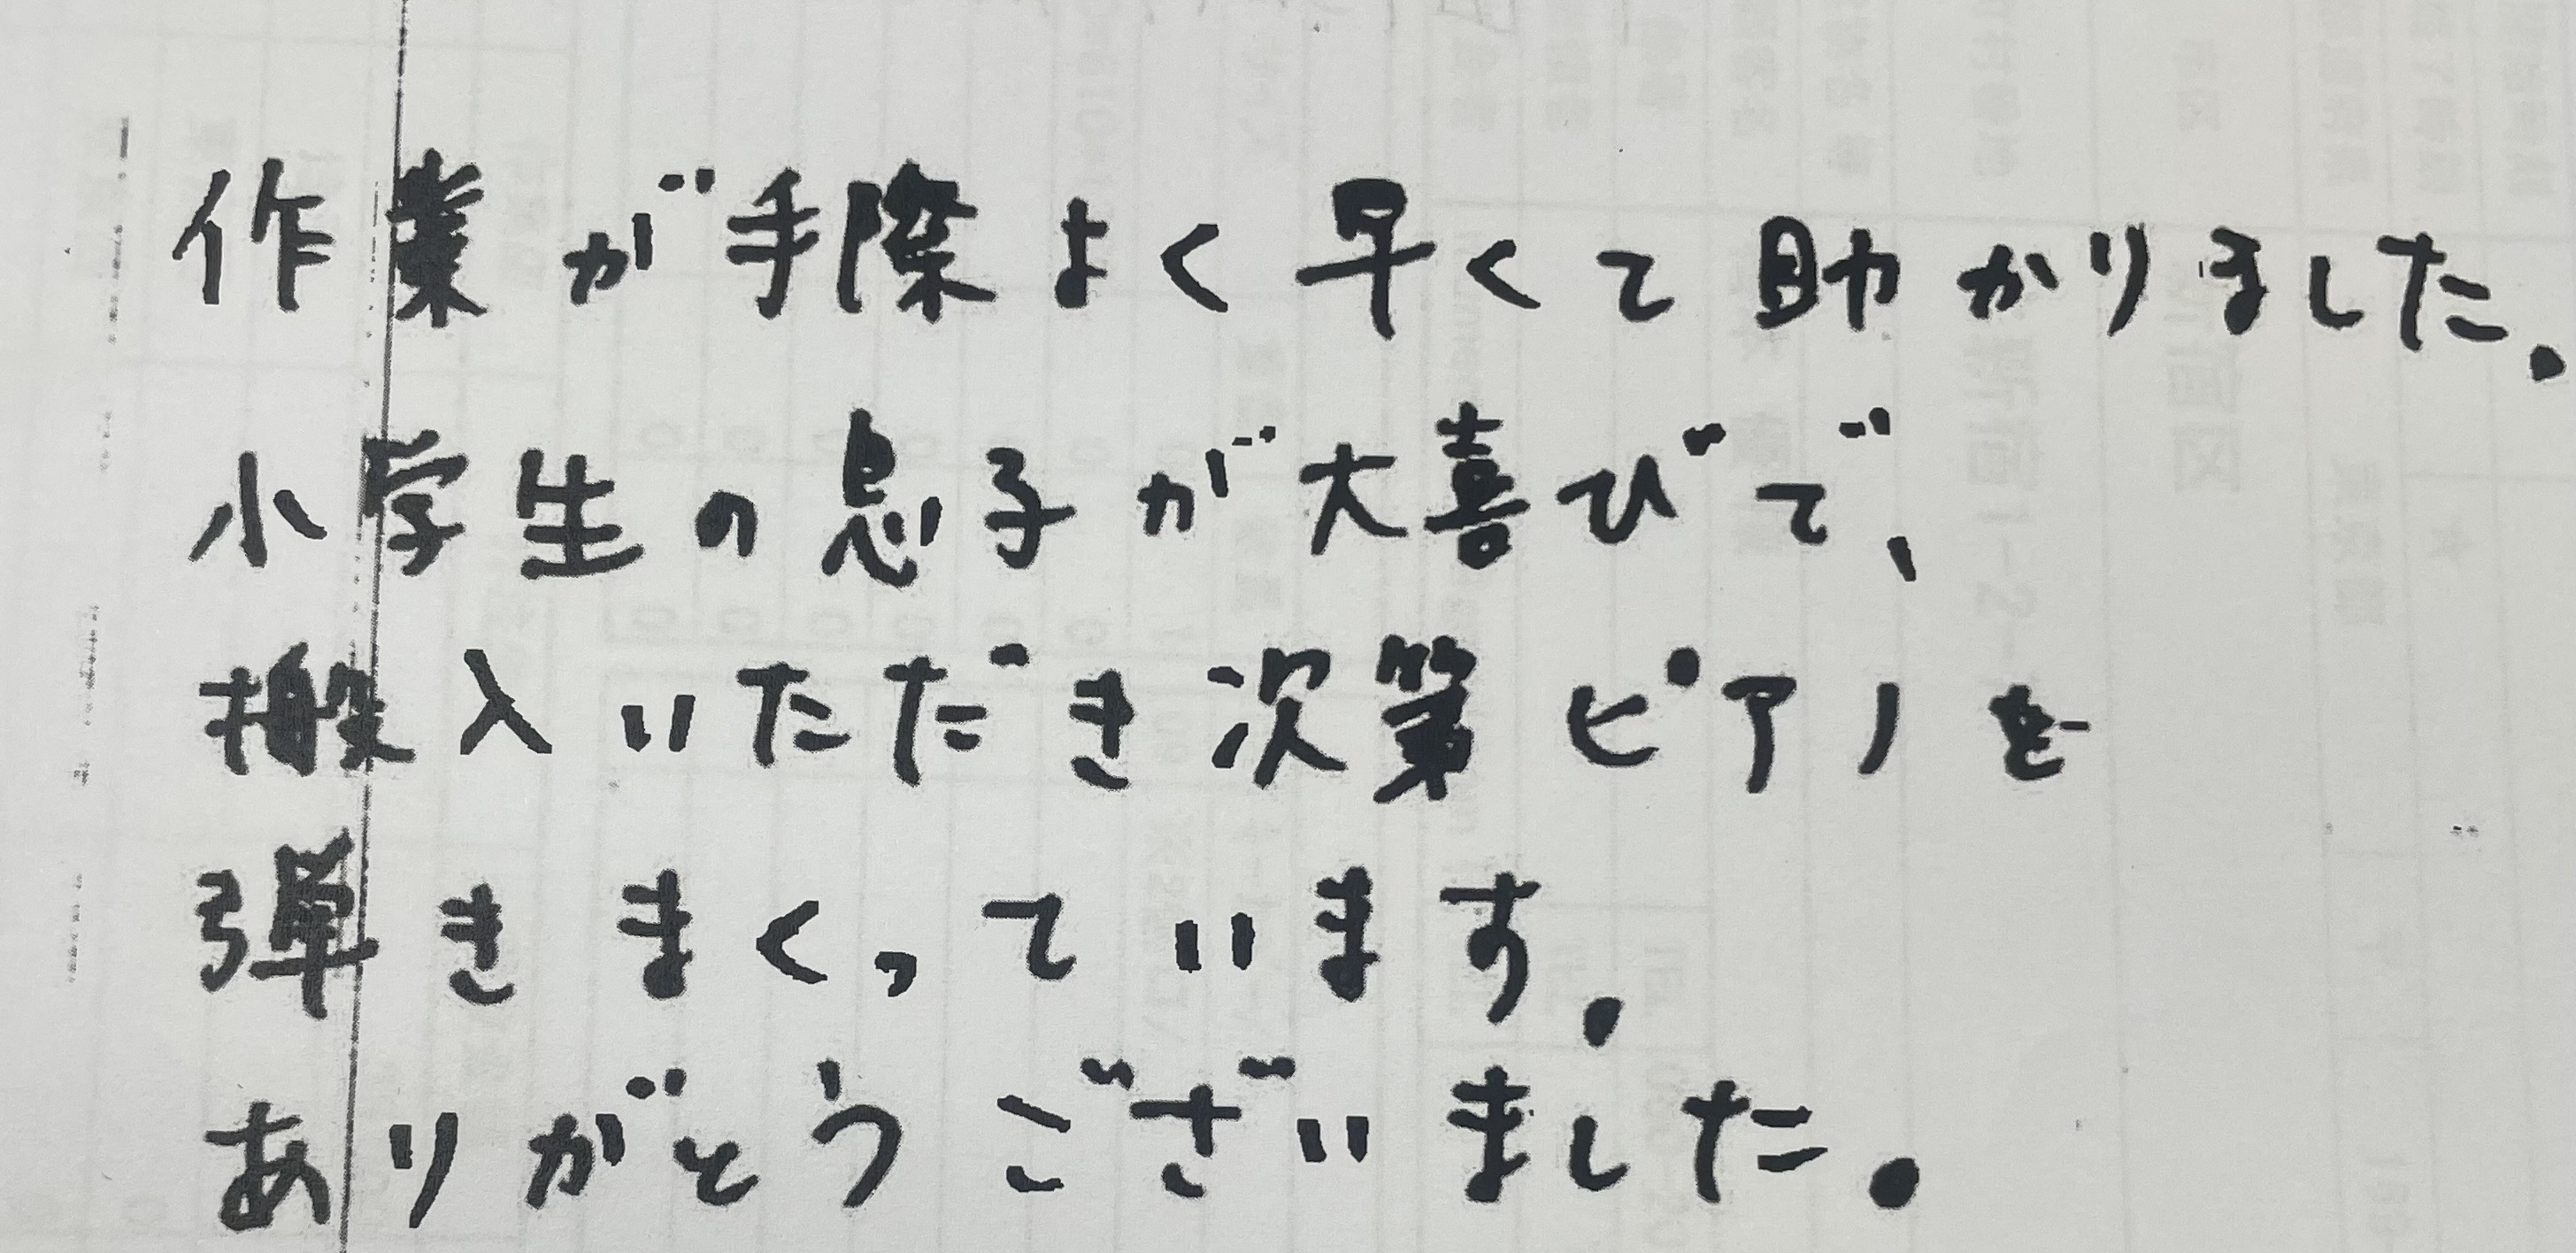 作業が手際よく早くて助かりました。
小学生の息子が大喜びで、
搬入いただき次第ピアノを
弾きまくっています。
ありがとうございました。